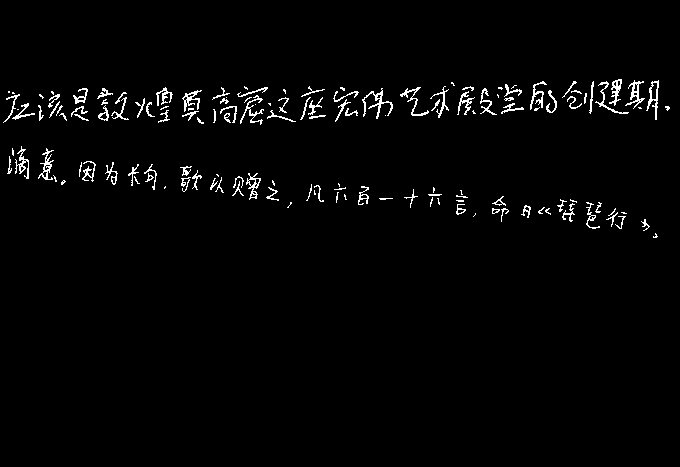 应该是敦煌莫高窟这座宏伟艺术殿堂的创建期.
滴意。因为长句,歌以赠之,凡六百一十六言,命曰《琵琶行》。